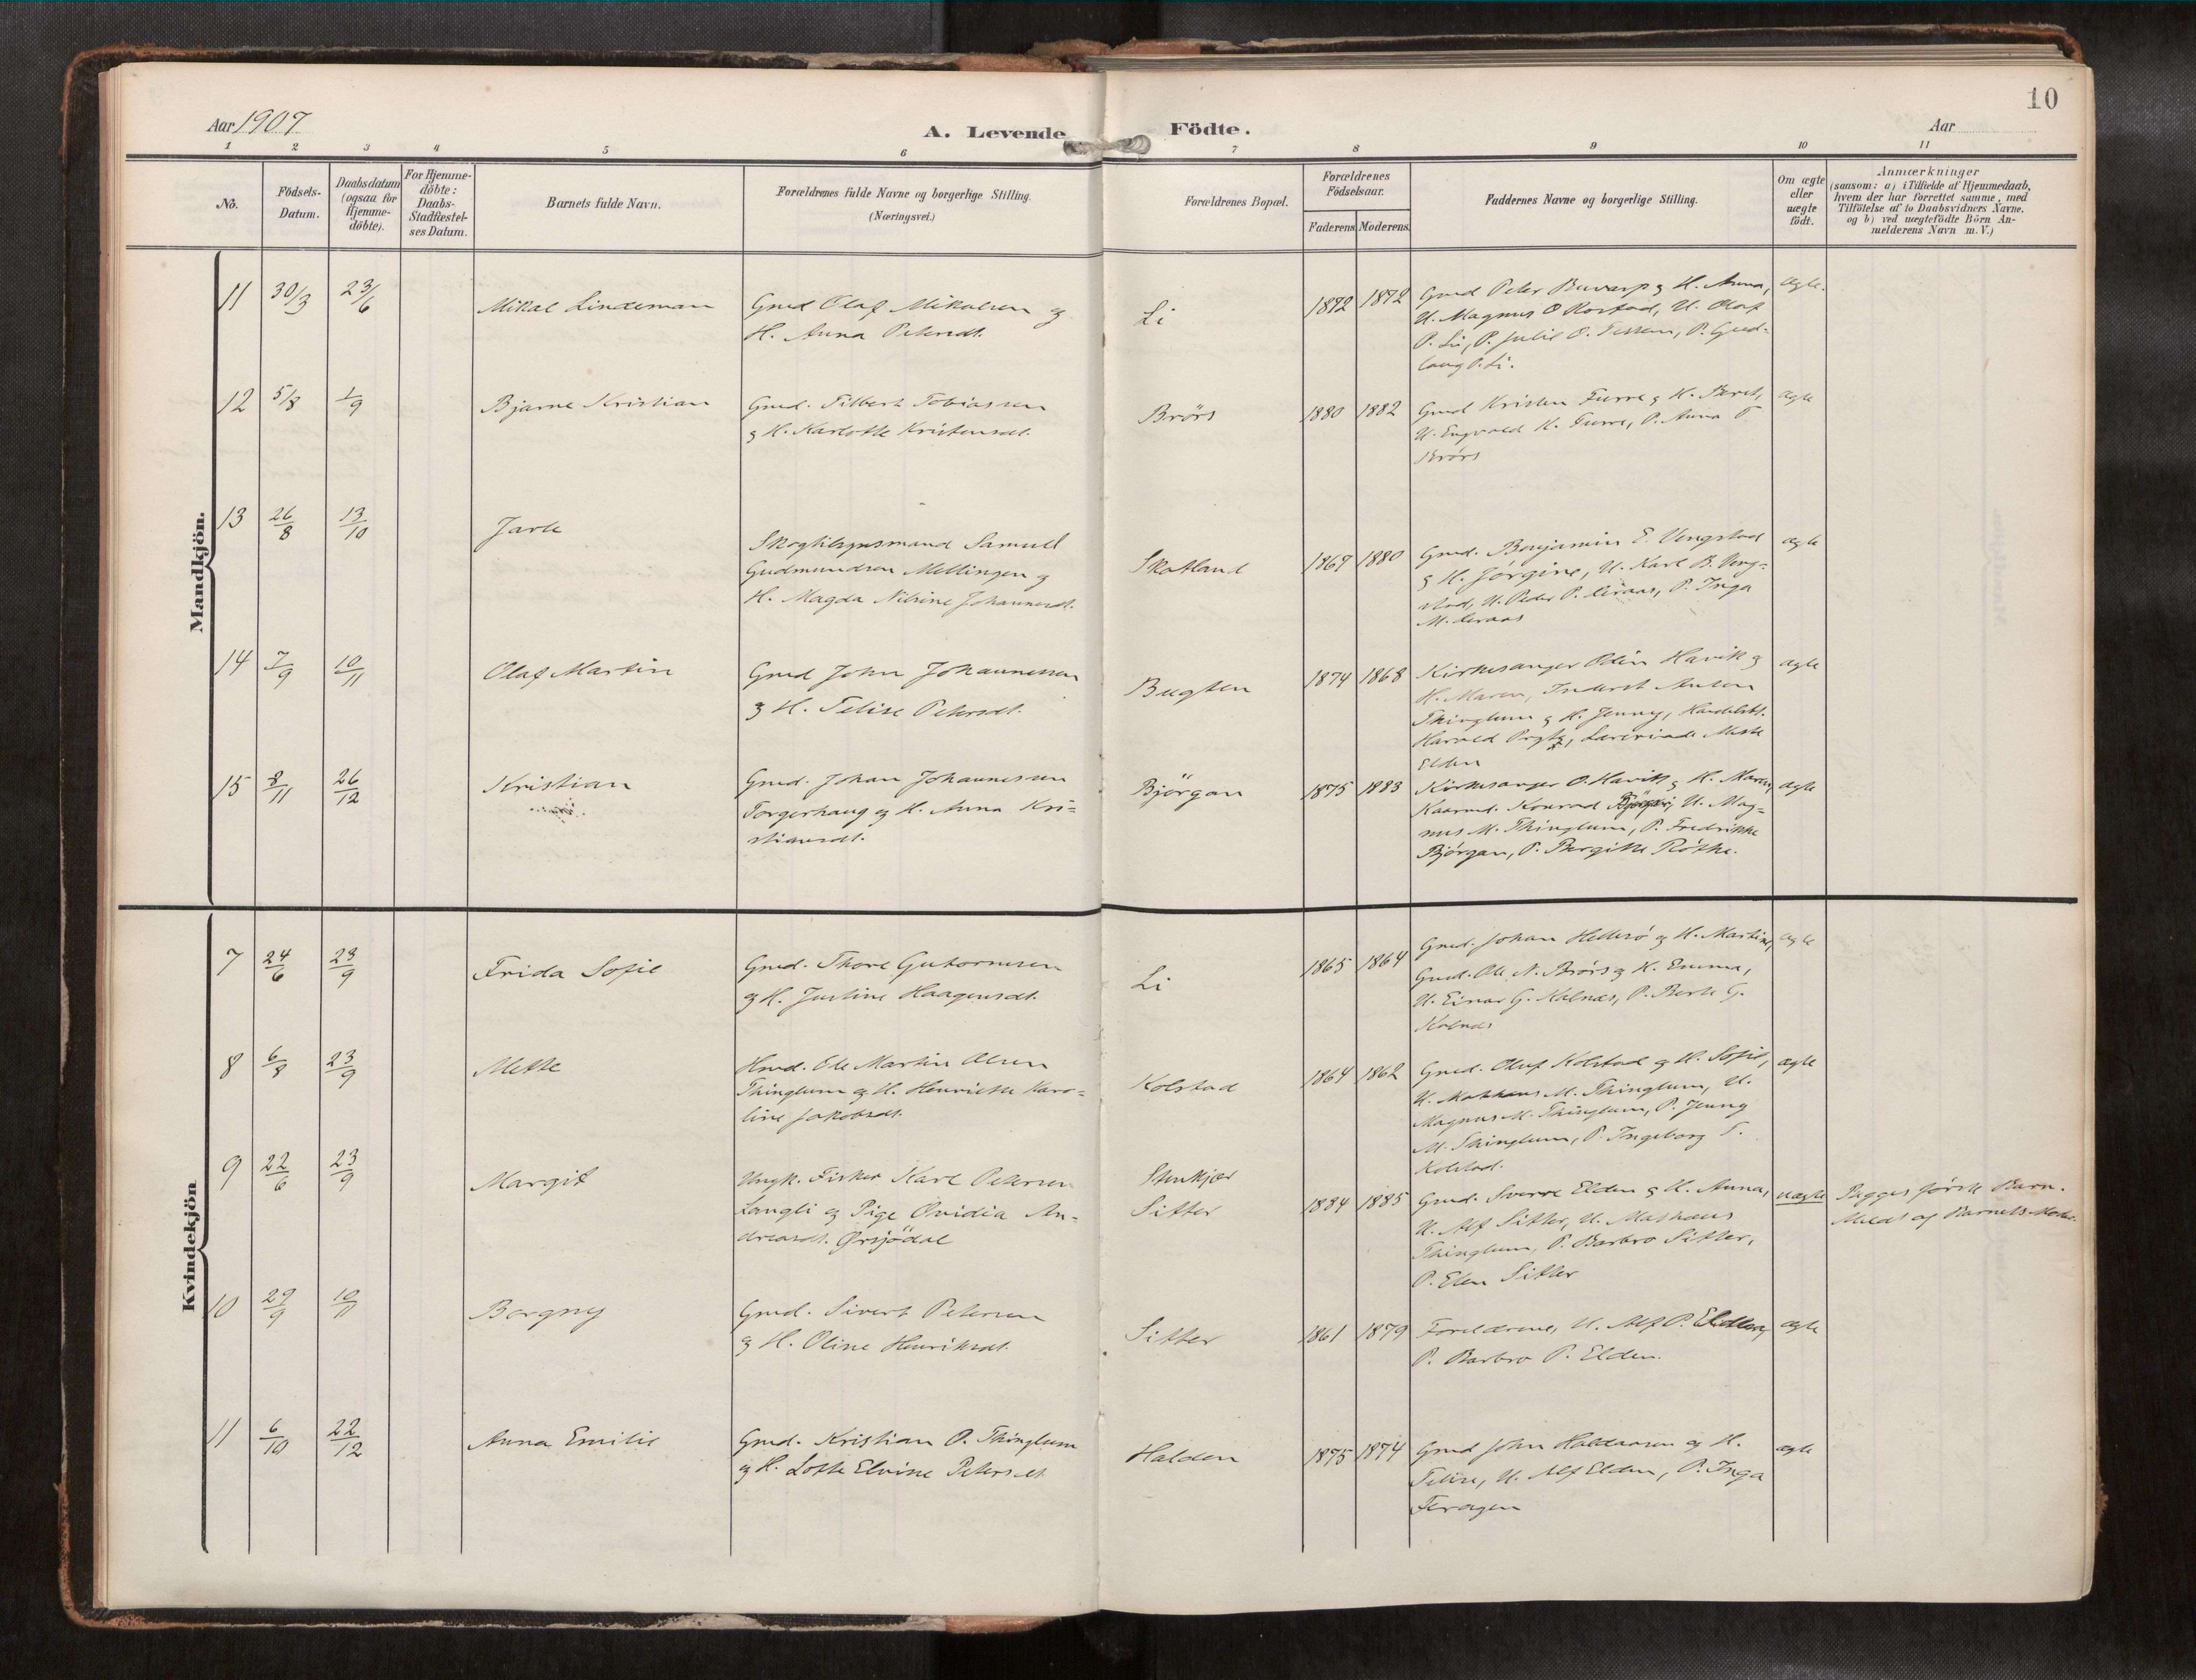 10
Aar 1907
A. Levende Födte.
Aar
1 2 3 4 5 6 7 8 9 10 11
No.
Födsels-Datum.
Daabsdatum (ogsaa for Hjemme-döbte).
For Hjemme-döbte: Daabs-Stadfæstel-ses Datum.
Barnets fulde Navn.
Forældrenes fulde Navne og borgerlige Stilling.
(Næringsvei.)
Forældrenes Bopæl.
Forældrenes Födselsaar.
Faderens Moderens
Faddernes Navne og borgerlige Stilling.
Om ægte eller uægte födt.
Anmærkninger
(saasom: a) i Tilfælde af Hjemmedaab,
hvem der har forrettet samme, med
Tilföielse af to Daabsvidners Navne,
og b) ved uægtefödte Börn An-
melderens Navn m. V.)
Mandkjön.
11 30/3 23/6 Mikal Lindeman
Gmd Olaf Mikalsen og
H. Anna Petersdt.
Li 1872 1872
Gmd Peter Buvarp og H. Anna,
U. Magnus O Rostad, U. Olaf
P. Li, P. Julie O. , P. Gud-
laug P. Li.
ægte.
12 5/8 1/9 Bjarne Kristian
Gmd. Tilbert Tobiassen
g H. Karlotte Kristensdt.
Brörs 1880 1882
Gmd Kristen Furre g H. Beret,
U. Engvald K. Furre, P. Anna T
Brörs
ægte
13 26/8 13/10 Jarle
Skogtilsynsmand Samuel
Gudmundsen Mellingen g
H. Magda Nilsine Johannesdt.
Skatland 1869 1880
Gmd. Benjamin E. Vengstad
g H. Jörgine, U. Karl B. Veng-
stad, U. Peder P. Leraas, P. Inga
M. Leraas
ægte
14 7/9 10/11 Olaf Martin
Gmd John Johannessen
g H. Felise Petersdt.
Bugten 1874 1868
Kirkesanger Odin Havik g
H. Maren, Inderst Anton
Thinglum g H. Jenny, Handelsbt.
Harald , Lærerinde Mette
Elden
ægte
15 8/11 26/12 Kristian
Gmd. Johan Johannessen
Torgerhaug og H. Anna Kri-
stiansdt.
Björgan 1875 1883
Kirkesanger O. Havik g H. Maren,
Kaarmd. Konrad Björgan, U. Mag-
nus M. Thinglum, P. Fredrikke
Björgan, P. Bergitte Röthe.
ægte
Kvindekjön
7 24/6 23/9 Frida Sofie
Gmd. Thore Gutormsen
og H. Justine Haagensdt.
Li 1865 1864
Gmd. Johan Hellesö og H. Martine,
Gmd. Ole N. Brörs g H. Emma,
U. Einar G. Kalnæs, P. Berte G.
Kalnæs
ægte
8 6/8 23/9 Mette
Hmd. Ole Martin Olsen
Thinglum og H. Henriette Karo-
line Jakobsdt.
Kolstad 1864 1862
Gmd. Oluf Kolstad og H. Sofie,
U. Mathæus M. Thinglum, U.
Magnus M. Thinglum, P. Jenny
M. Thinglum, P. Ingeborg T.
Kolstad.
ægte
9 22/6 23/9 Margit
Ungk. Fisker Karl Petersen
Langli og Pige Ovidia An-
dreasdt. Örsjödal
Stenkjær
Sitter 1884 1885
Gmd. Sverre Elden g H. Anna,
U. Alf Sitter, U. Mathæus
Thinglum, P. Barbro Sitter,
P. Elen Sitter
uægte
Begges förste Barn.
Meldt af Barnets Moder.
10 29/9 10/11 Borgny
Gmd. Sivert Petersen
g H. Oline Henriksdt.
Sitter 1861 1879
Forældrene, U. Alf P. Elden,
P. Barbro P. Elden.
ægte
11 6/10 22/12 Anna Emilie
Gmd. Kristian O. Thinglum
og H. Lotte Elvine Petersdt.
Halden 1875 1874
Gmd John Haldaasen og H.
Felise, U. Alf Elden, P. Inga
Feragen
ægte